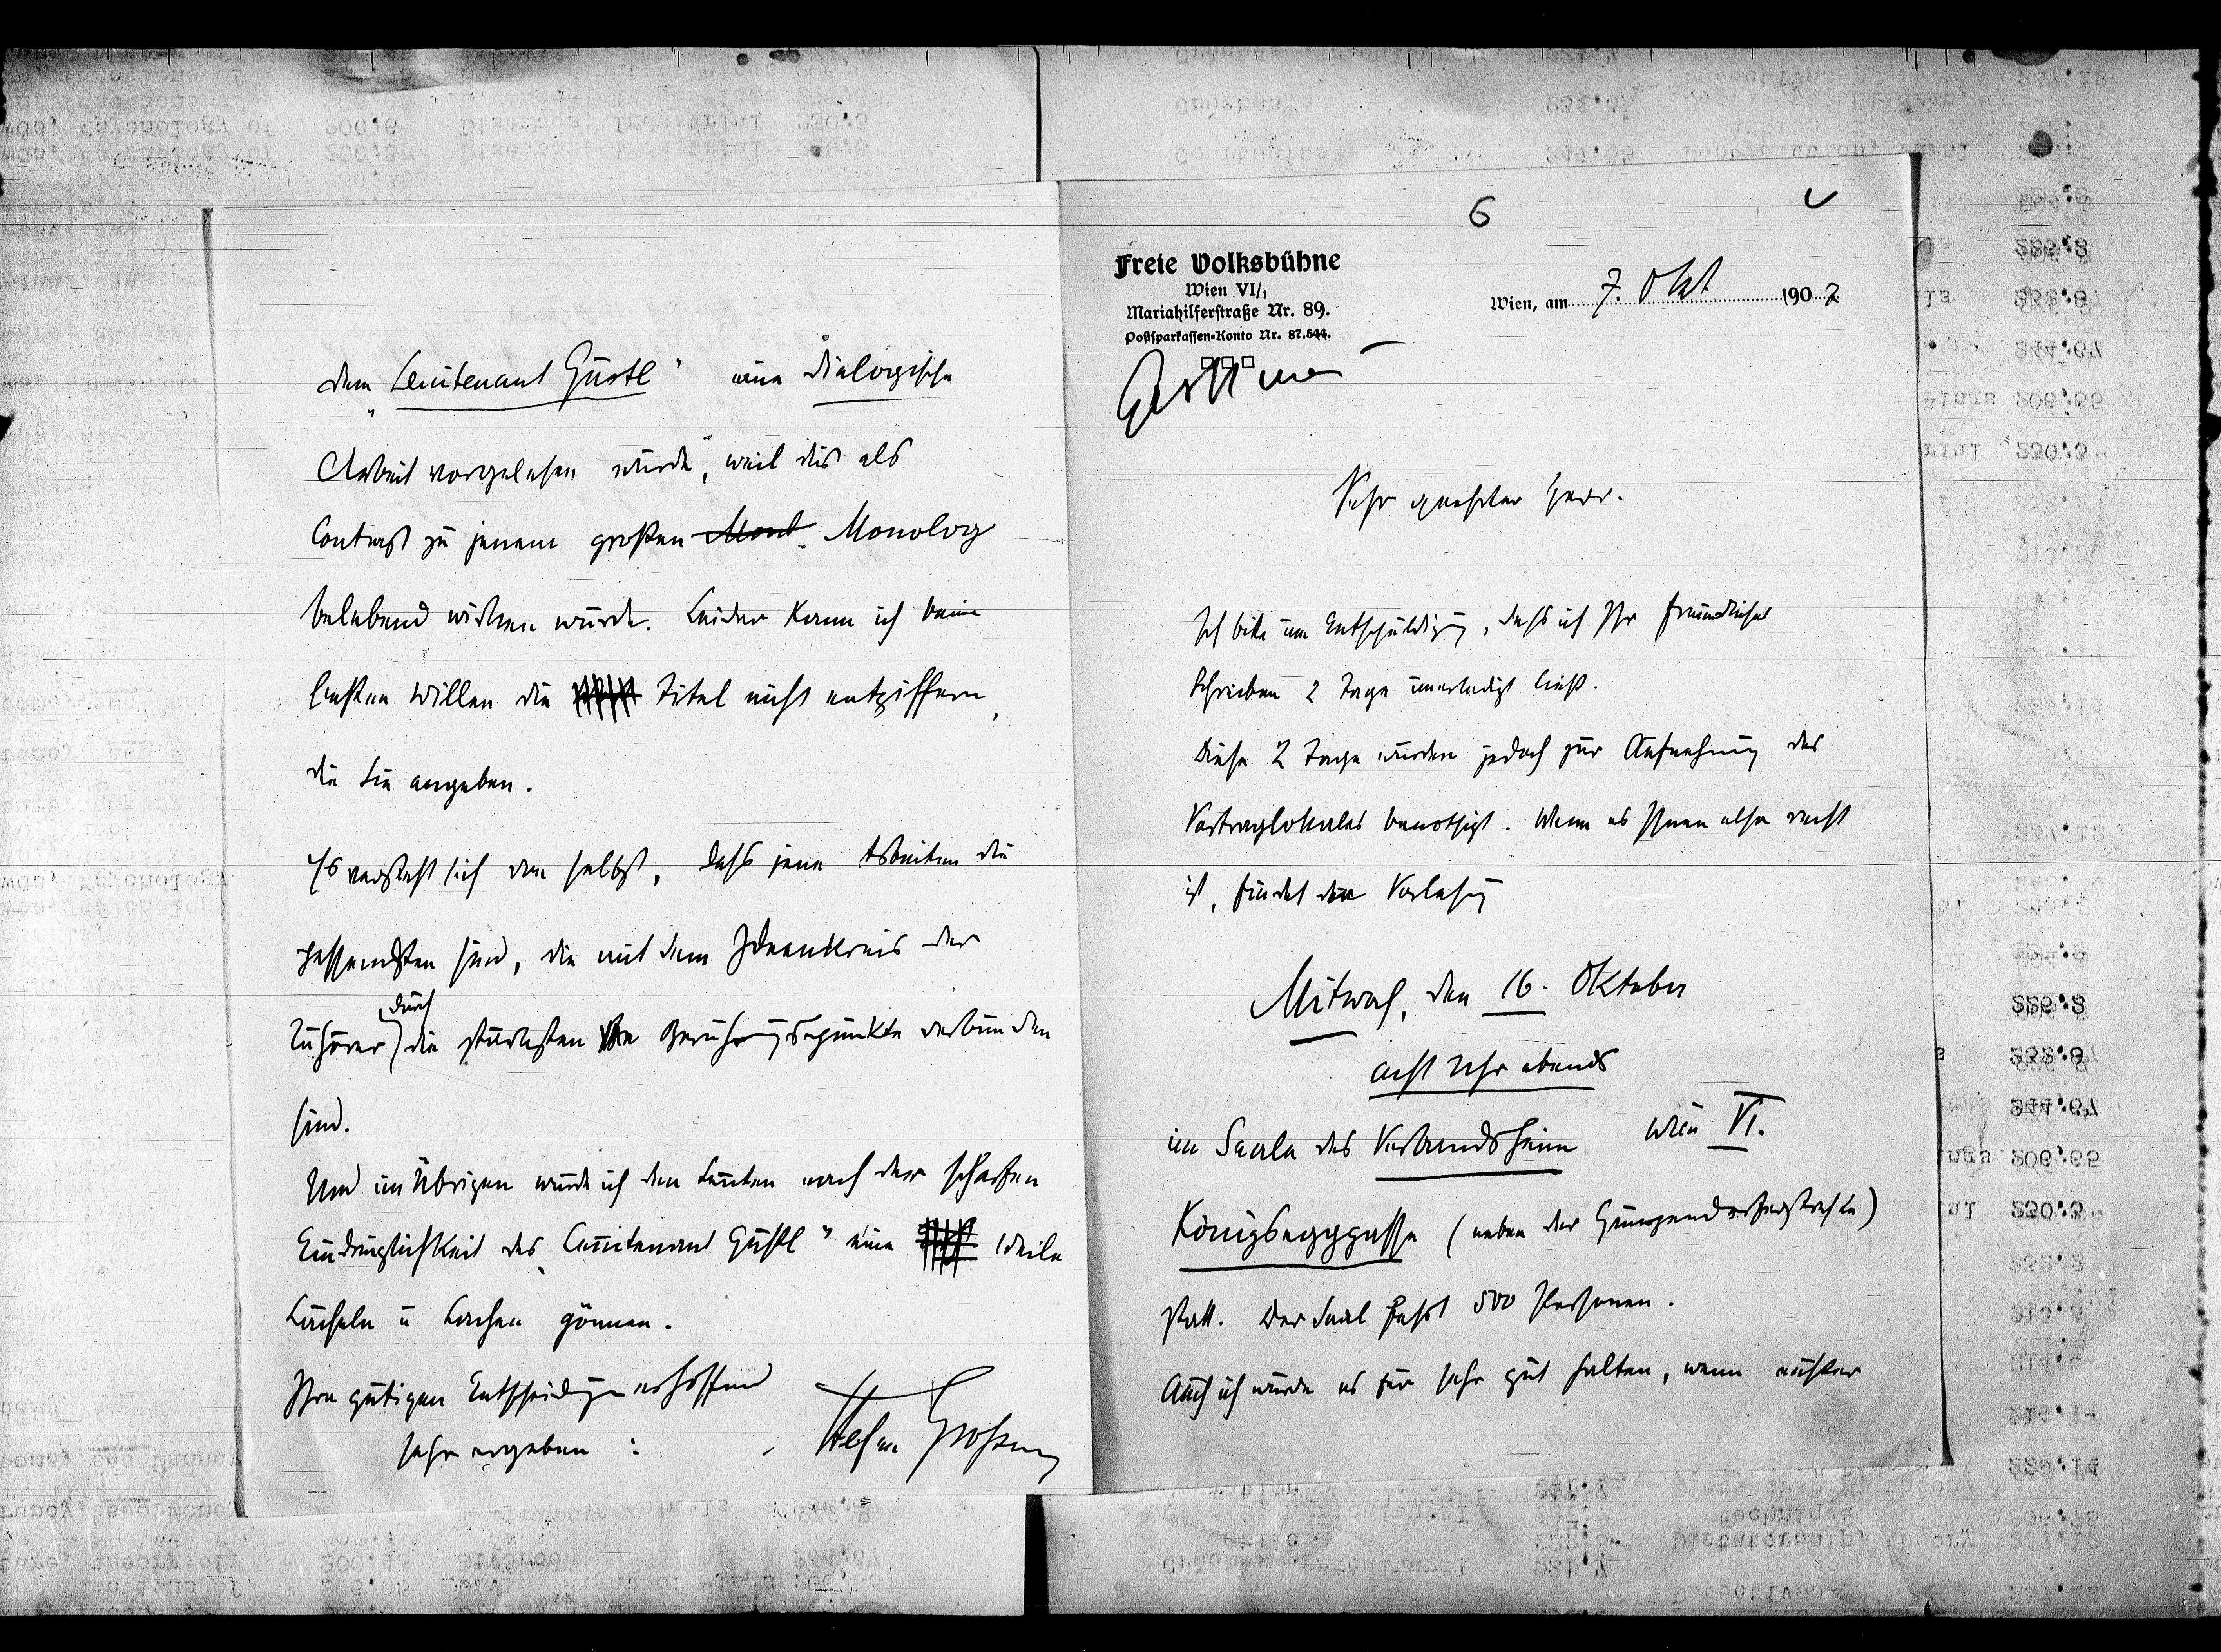 6
Freie Volksbühne
Wien VI/1
Mariahilferstraße Nr. 89.
Postsparkassen-Konto Nr. 87.544.
Wien, am 7. Okt. 1907
Sehr geehrter Herr.
Ich bitte um Entschuldigung, dass ich Ihr freundliches
Schreiben 2 Tage unerledigt ließ.
Diese 2 Tage wurden jedoch zur Aufnehmung des
Vortraglokales benöthigt. Wenn es Ihnen also recht
ist, findet die Vorlesung
Mitwoch, den 16. Oktober
acht Uhr abends
im Saale des Verbandsheim Wien VI.
Königseggasse (neben der Gumpendorferstrasse)
statt. Der Saal fasst 500 Personen.
Auch ich würde es für sehr gut halten, wenn außer
dem „Leutenant Gustl" eine dialogische
Arbeit vorgelesen würde, weil dies als
Contrast zu jenem großen Monolog
belebend wirken würde. Leider kann ich beim
besten Willen die Titel nicht entziffern,
die Sie angeben.
Es versteht sich von selbst, dass jene Arbeiten die
passendsten sind, die mit dem Ideenkreis der
Zuhörer durch die stärksten Berührungspunkte verbunden
sind.
Und im Übrigen würde ich den Leuten nach der scharfen
Eindringlichkeit des „Leutenant Gustl" eine Weile
Lächeln u Lachen gönnen.
Ihre gütigen Entscheidung erhoffend
sehr ergeben:
Stefan Grossmann